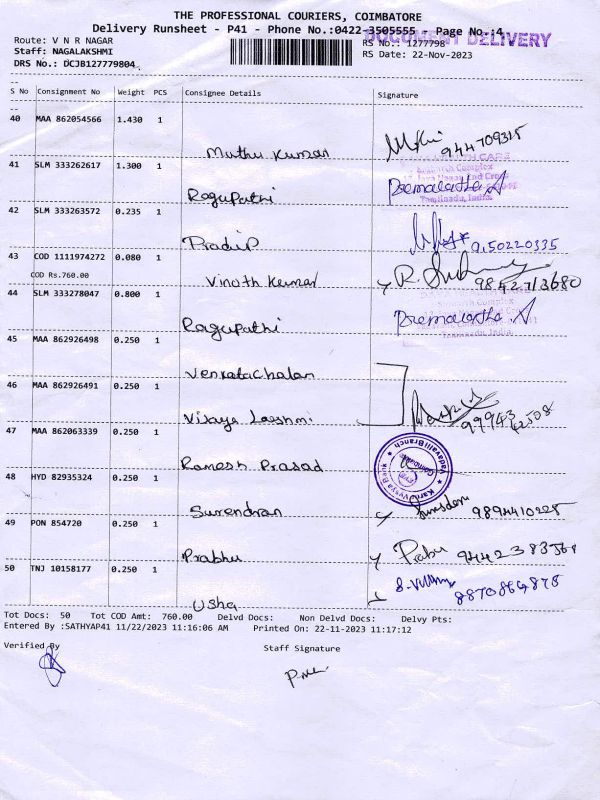 THE PROFESSIONAL COURIERS, COIMBATORE
Delivery Runsheet - P41 - Phone No.:0422-3505555 - Page No.:4
DOCUMENT DELIVERY
Route: V N R NAGAR
RS No.: 1277798
Staff: NAGALAKSHMI
RS Date: 22-Nov-2023
DRS No.: DCJB127779804
S No Consignment No Weight PCS Consignee Details Signature
40 MAA 862054566 1.430 1
Muthu Kumar
41 SLM 333262617 1.300 1
Ragupathi Premalatha A
Tamilnadu, India.
42 SLM 333263572 0.235 1
Pradip 9150220335
43 COD 1111974272 0.080 1
COD Rs.760.00
Vinoth Kumar 9842713680
44 SLM 333278047 0.800 1
Ragupathi Premalatha A
Tamilnadu, India
45 MAA 862926498 0.250 1
Venkatachalan
46 MAA 862926491 0.250 1
Vijaya Lasshmi 99943
47 MAA 862063339 0.250 1
Ramesh Prasad
Vadavalli Branch
Vysya Bank
48 HYD 82935324 0.250 1
Surendran 9894410225
49 PON 854720 0.250 1
Prabhu Prabu
50 TNJ 10158177 0.250 1
Usha
Tot Docs: 50 Tot COD Amt: 760.00 Delvd Docs: Non Delvd Docs: Delvy Pts:
Entered By :SATHYAP41 11/22/2023 11:16:06 AM Printed On: 22-11-2023 11:17:12
Verified By Staff Signature